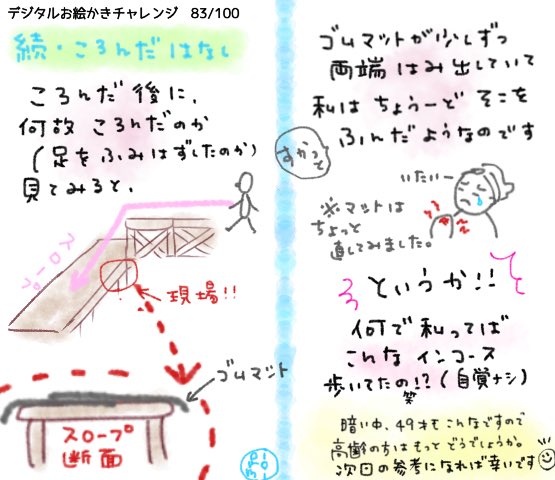 デジタルお絵かきチャレンジ 83/100
続・ころんだはなし
ころんだ後に、
何故 ころんだのか
(足をふみはずしたのか)
見てみると、
スロープ
現場!!
ゴムマット
スロープ
断面
ゴムマットが少しずつ
両端 はみ出していて
私は ちょうーど そこを
ふんだようなのです
すかって
いたいー
※マットは
ちょっと
直してみました。
というか!!
何で 私ってば
こんな インコース
歩いてたの!? (自覚ナシ)
笑
暗い中、49才もこんなですので
高齢の方は もっと どうでしょうか。
次回の参考になれば幸いです